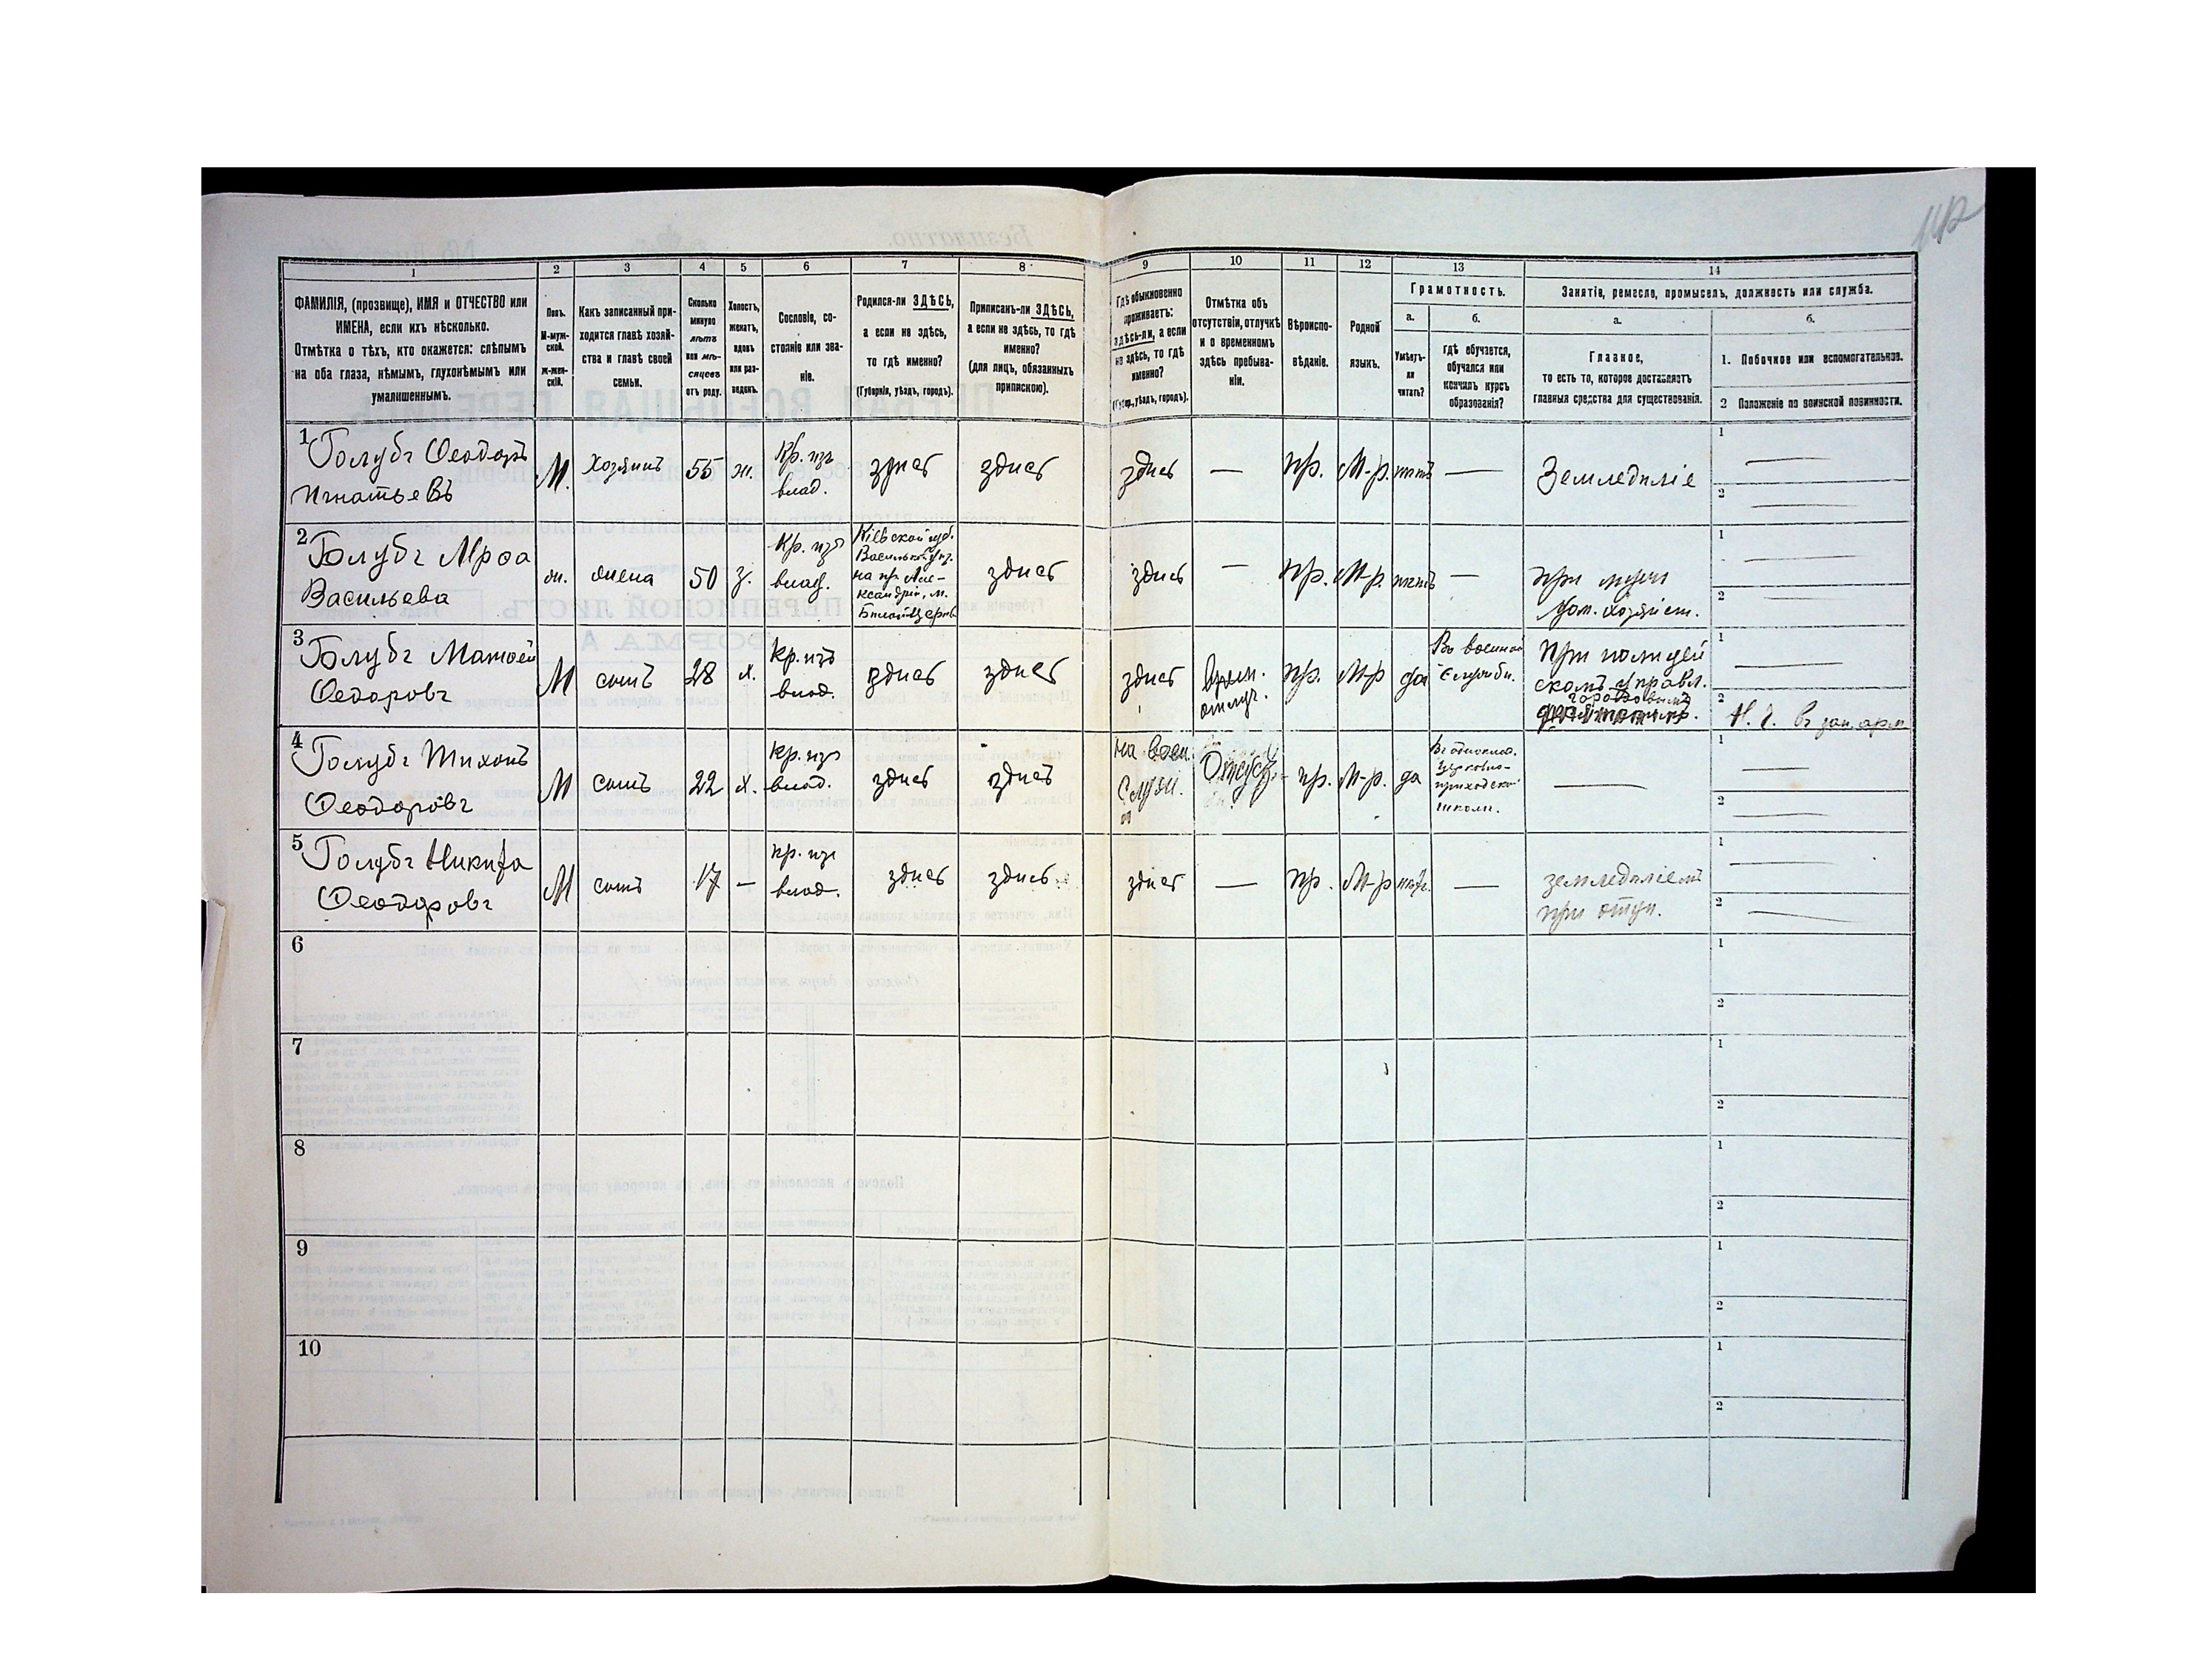 112
1 2 3 4 5 6 7 8 9 10 11 12 13 14
ФАМИЛІЯ, (прозвище), ИМЯ и ОТЧЕСТВО или
ИМЕНА, если ихъ нѣсколько.
Отмѣтка о тѣхъ, кто окажется: слѣпымъ
на оба глаза, нѣмымъ, глухонѣмымъ или
умалишеннымъ.
Полъ.
М-муж-
ской.
Ж-жен-
скій.
Какъ записанный при-
ходится главѣ хозяй-
ства и главѣ своей
семьи.
Сколько
минуло
лѣтъ
или мѣ-
сяцевъ
отъ роду.
Холостъ,
женатъ,
вдовъ
или раз-
веденъ.
Сословіе, со-
стояніе или зва-
ніе.
Родился-ли ЗДѢСЬ,
а если не здѣсь,
то гдѣ именно?
(Губернія, уѣздъ, городъ).
Приписанъ-ли ЗДѢСЬ,
а если не здѣсь, то гдѣ
именно?
(для лицъ, обязанныхъ
припискою).
Гдѣ обыкновенно
проживаетъ:
здѣсь-ли, а если
не здѣсь, то гдѣ
именно?
(Губер., уѣздъ, городъ).
Отмѣтка объ
отсутствіи, отлучкѣ
и о временномъ
здѣсь пребыва-
ніи.
Вѣроиспо-
вѣданіе.
Родной
языкъ.
Грамотность.
а.
Умѣетъ-
ли
читать?
б.
гдѣ обучается,
обучался или
кончилъ курсъ
образованія?
Занятіе, ремесло, промыселъ, должность или служба.
а.
Главное,
то есть то, которое доставляетъ
главныя средства для существованія.
б.
1. Побочное или вспомогательное.
2 Положеніе по воинской повинности.
1 Голубъ Ѳеодоръ
Игнатьевъ
М. хозяинъ 55 ж.
Кр. изъ
влад.
здѣсь здѣсь здѣсь — пр. М-р. нѣтъ — Земледѣліе
1 —
2 —
2 Голубъ
Васильева
ж. жена 50 з.
Кр. изъ
влад.
Кіевской губ.
здѣсь здѣсь — пр. М-р. нѣтъ —
при мужѣ
дом. хозяйст.
1 —
2 —
3 Голубъ Матѳей
Ѳедоровъ
М сынъ 28 х.
Кр. изъ
влад.
здѣсь здѣсь здѣсь
Врем.
отлуч.
пр. М-р да
Въ военной
службѣ.
При полицей
скомъ управл.
городовымъ
1 —
2
4 Голубъ Тихонъ
Ѳеодоровъ
М сынъ 22 х.
Кр. изъ
влад.
здѣсь здѣсь
На воен.
Служ.
пр. М-р. да
церковно-
приходской
школѣ.
—
1 —
2 —
5 Голубъ Никита
Ѳеодоровъ
М сынъ 17 —
кр. изъ
влад.
здѣсь здѣсь здѣсь — пр. М-р нѣтъ. —
земледѣліемъ
при отцѣ.
1 —
2 —
6 1
2
7 1
2
8 1
2
9 1
2
10 1
2